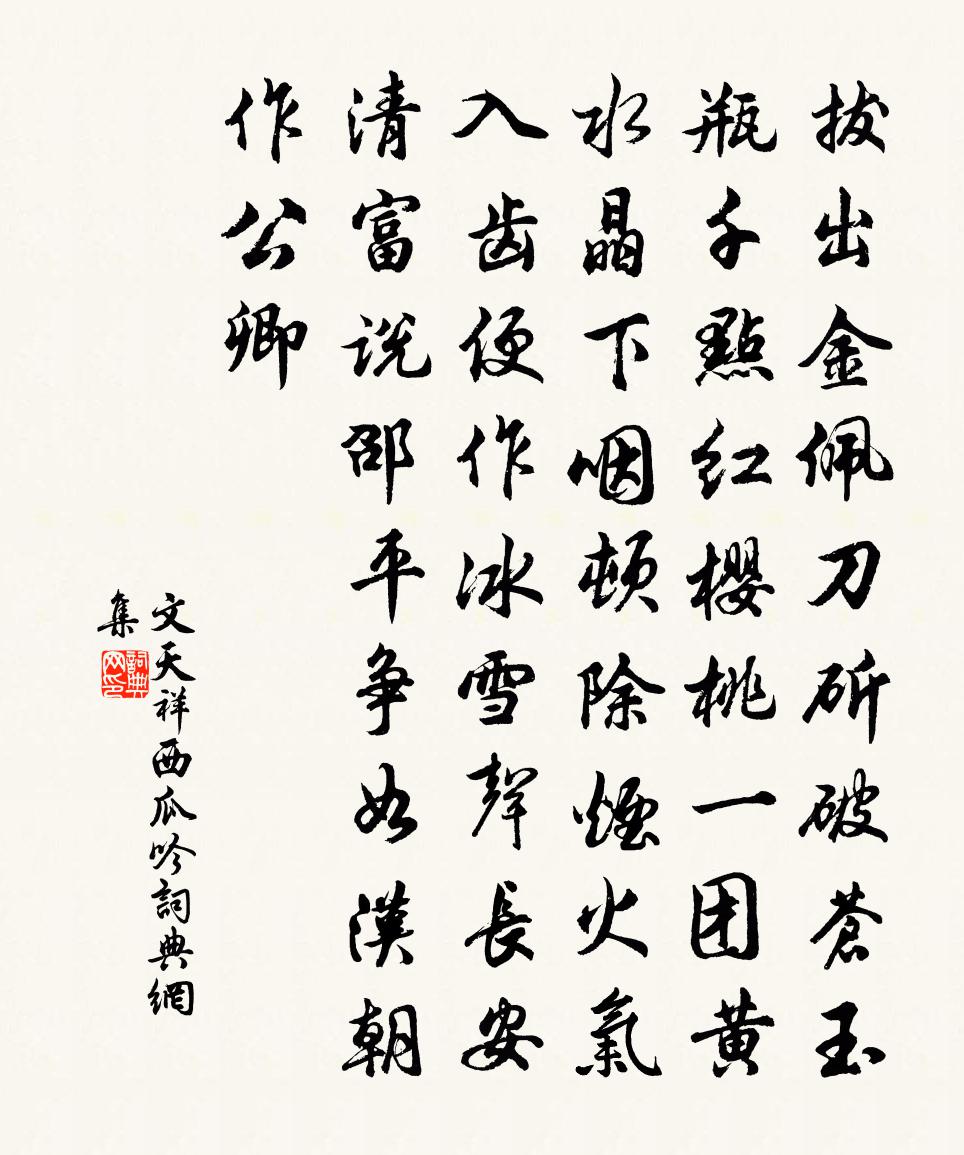 拔出金佩刀斫破蒼玉
瓶千點红櫻桃一团黄
水晶下咽頓除煙火氣
入齿便作冰雪聲長安
清富说邵平争如漢朝
作公卿
文天祥西瓜吟詞典網
集
詞典
网印